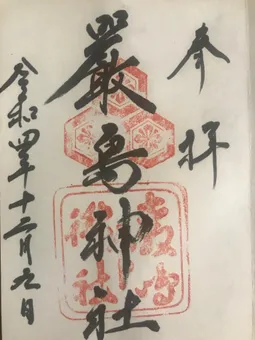 奉拝
嚴島神社
令和四年十二月九日